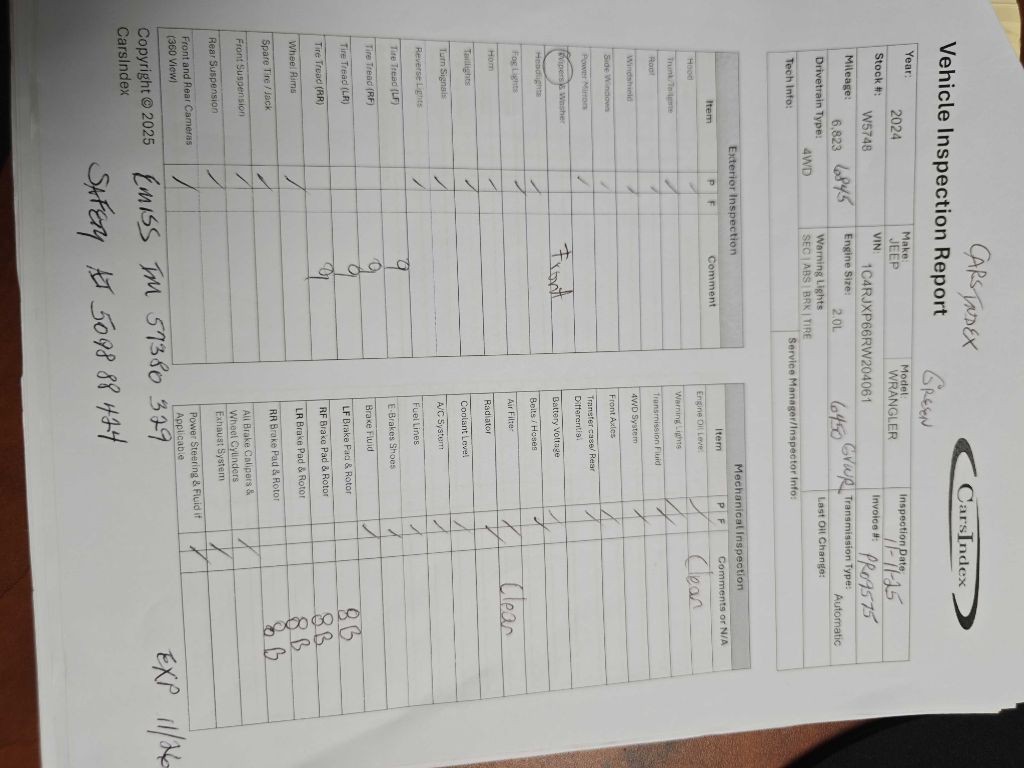 CARS INDEX
GREEN
CarsIndex
Vehicle Inspection Report
Year: 2024
Make: JEEP
Model: WRANGLER
Inspection Date: 11-11-25
Stock #: W5748
VIN: 1C4RJXP66RW204061
Invoice #: PR09575
Mileage: 6,823 6845
Engine Size: 2.0L 6450 GVWR
Transmission Type: Automatic
Drivetrain Type: 4WD
Warning Lights SEC | ABS | BRK | TIRE
Last Oil Change:
Tech Info:
Service Manager/Inspector Info:
Exterior Inspection
Item P F Comment
Hood ✓
Trunk/Tailgate ✓
Roof ✓
Windshield ✓
Side Windows ✓
Power Mirrors ✓
Wipers & Washer Front
Headlights ✓
Fog Lights ✓
Horn ✓
Taillights ✓
Turn Signals ✓
Reverse Lights ✓
Tire Tread (LF) 9
Tire Tread (RF) 9
Tire Tread (LR) 9
Tire Tread (RR) 9
Wheel Rims ✓
Spare Tire / Jack ✓
Front Suspension ✓
Rear Suspension ✓
Front and Rear Cameras (360 View) ✓
Mechanical Inspection
Item P F Comments or N/A
Engine Oil Level ✓ Clear
Warning Lights ✓
Transmission Fluid ✓
4WD System ✓
Front Axles ✓
Transfer case/ Rear Differential ✓
Battery Voltage ✓
Belts / Hoses ✓
Air Filter ✓ Clear
Radiator ✓
Coolant Level ✓
A/C System ✓
Fuel Lines ✓
E-Brakes Shoes ✓
Brake Fluid ✓
LF Brake Pad & Rotor 8B
RF Brake Pad & Rotor 8B
LR Brake Pad & Rotor 8B
RR Brake Pad & Rotor 8B
All Brake Calipers & Wheel Cylinders ✓
Exhaust System ✓
Power Steering & Fluid if Applicable ✓
Copyright © 2025
CarsIndex
EMISS TM 57380 329
EXP 11/26
SAFETY AJ 5098 88 444